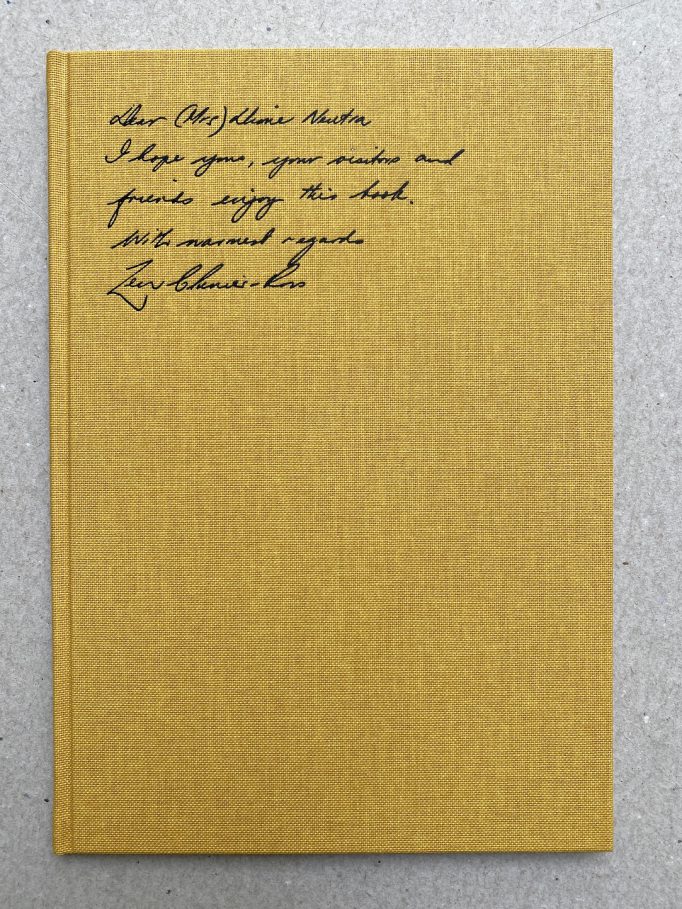 Dear (Mrs) Dione Neutra
I hope you, your visitors and
friends enjoy this book.
With warmest regards